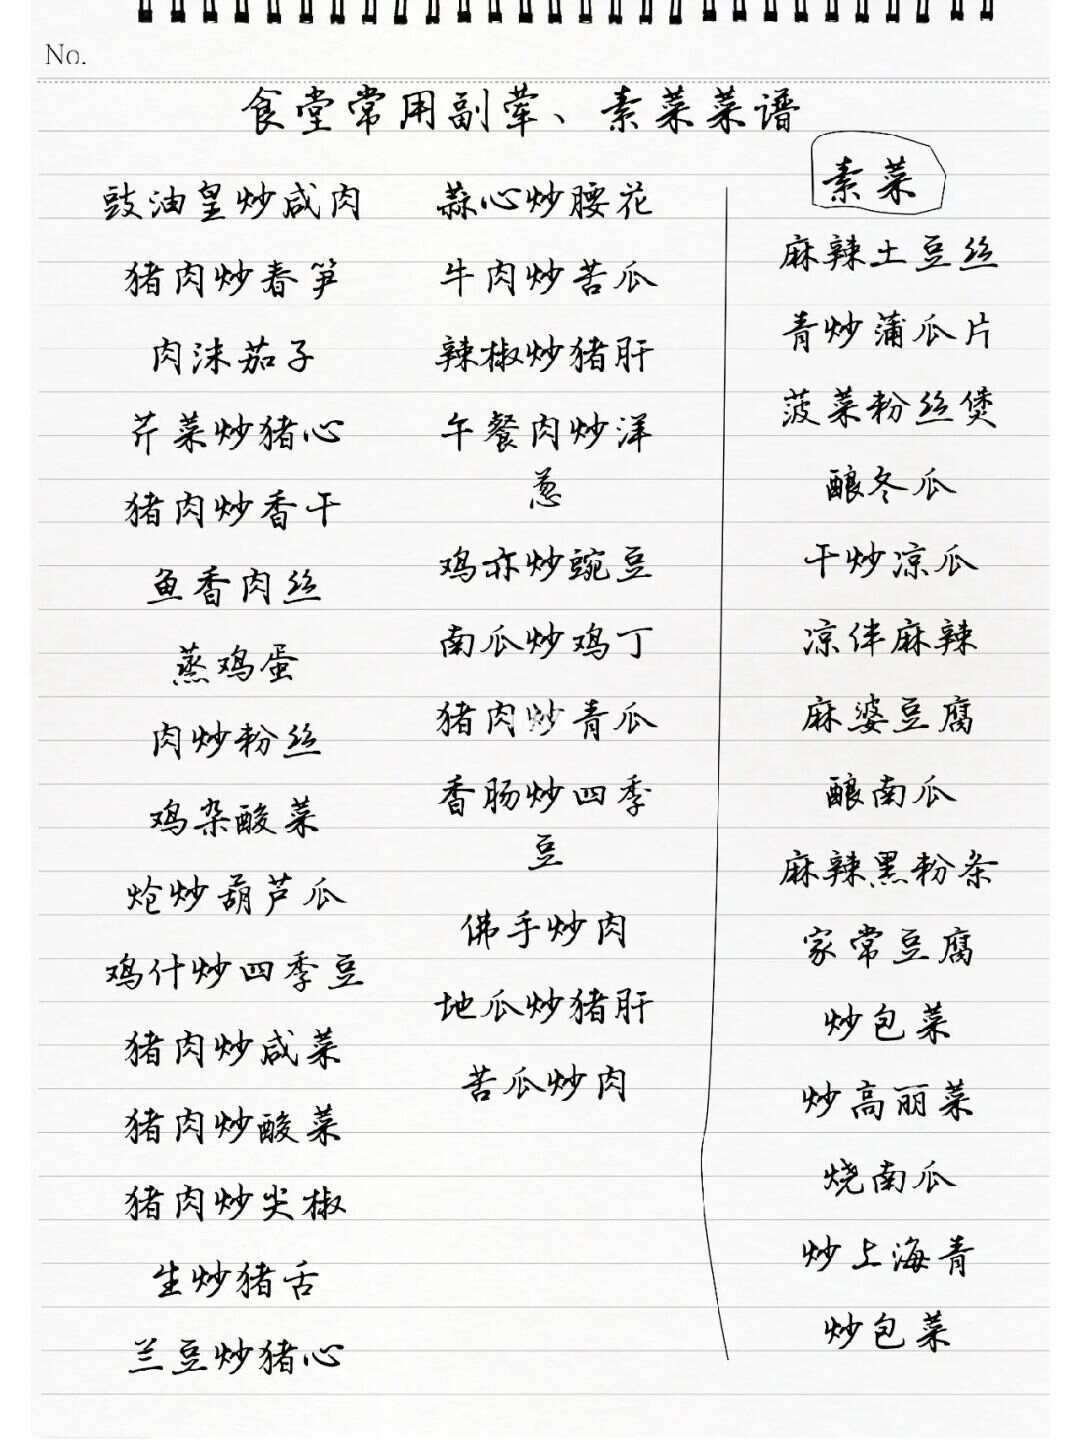 No.
食堂常用副荤、素菜菜谱
豉油皇炒咸肉
猪肉炒春笋
肉沫茄子
芹菜炒猪心
猪肉炒香干
鱼香肉丝
蒸鸡蛋
肉炒粉丝
鸡杂酸菜
炝炒葫芦瓜
鸡什炒四季豆
猪肉炒咸菜
猪肉炒酸菜
猪肉炒尖椒
生炒猪舌
兰豆炒猪心
蒜心炒腰花
牛肉炒苦瓜
辣椒炒猪肝
午餐肉炒洋
葱
鸡亦炒豌豆
南瓜炒鸡丁
猪肉炒青瓜
香肠炒四季
豆
佛手炒肉
地瓜炒猪肝
苦瓜炒肉
素菜
麻辣土豆丝
青炒蒲瓜片
菠菜粉丝煲
酿冬瓜
干炒凉瓜
凉伴麻辣
麻婆豆腐
酿南瓜
麻辣黑粉条
家常豆腐
炒包菜
炒高丽菜
烧南瓜
炒上海青
炒包菜